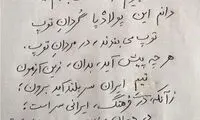 دانم این پولاد یا گردان توپ
توپ می بندند، در میدان توپ.
هر چه پیش آید، بدان، زین آزمون
تیم ایران سربلند آید برون؛
زآنکه در فرهنگ، ایرانی سر است؛